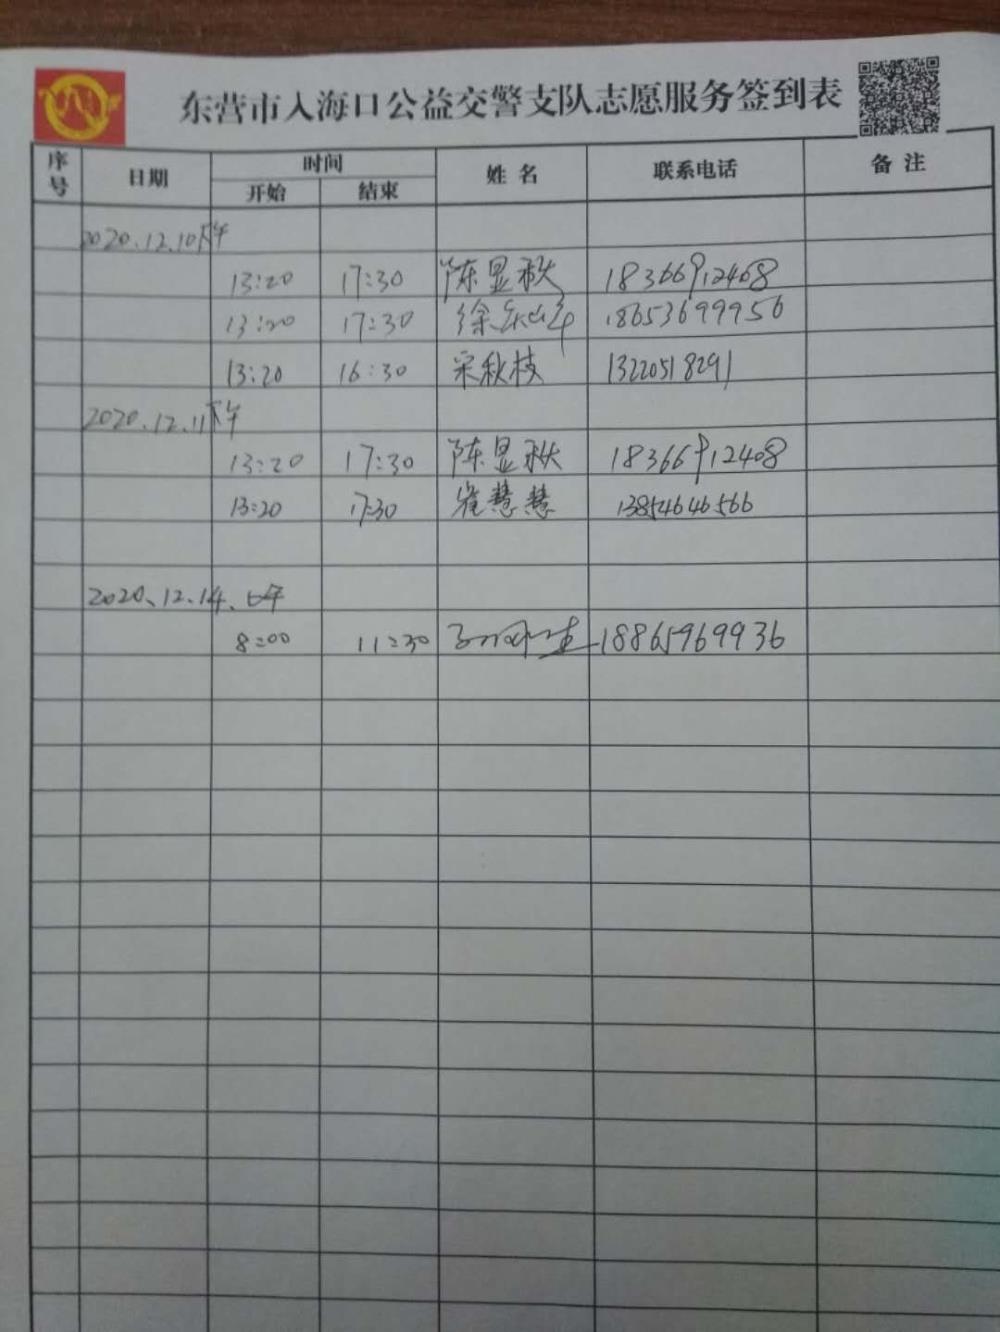 东营市入海口公益交警支队志愿服务签到表
序号 日期 时间 姓名 联系电话 备注
开始 结束
2020.12.10下午
13:20 17:30 陈显秋 18366912408
13:20 17:30 徐 18653699956
13:20 16:30 宋秋枝 13220518291
2020.12.11下午
13:20 17:30 陈显秋 18366912408
13:20 17:30 崔慧慧 13854646566
2020、12、14、上午
8:00 11:30 18865969936